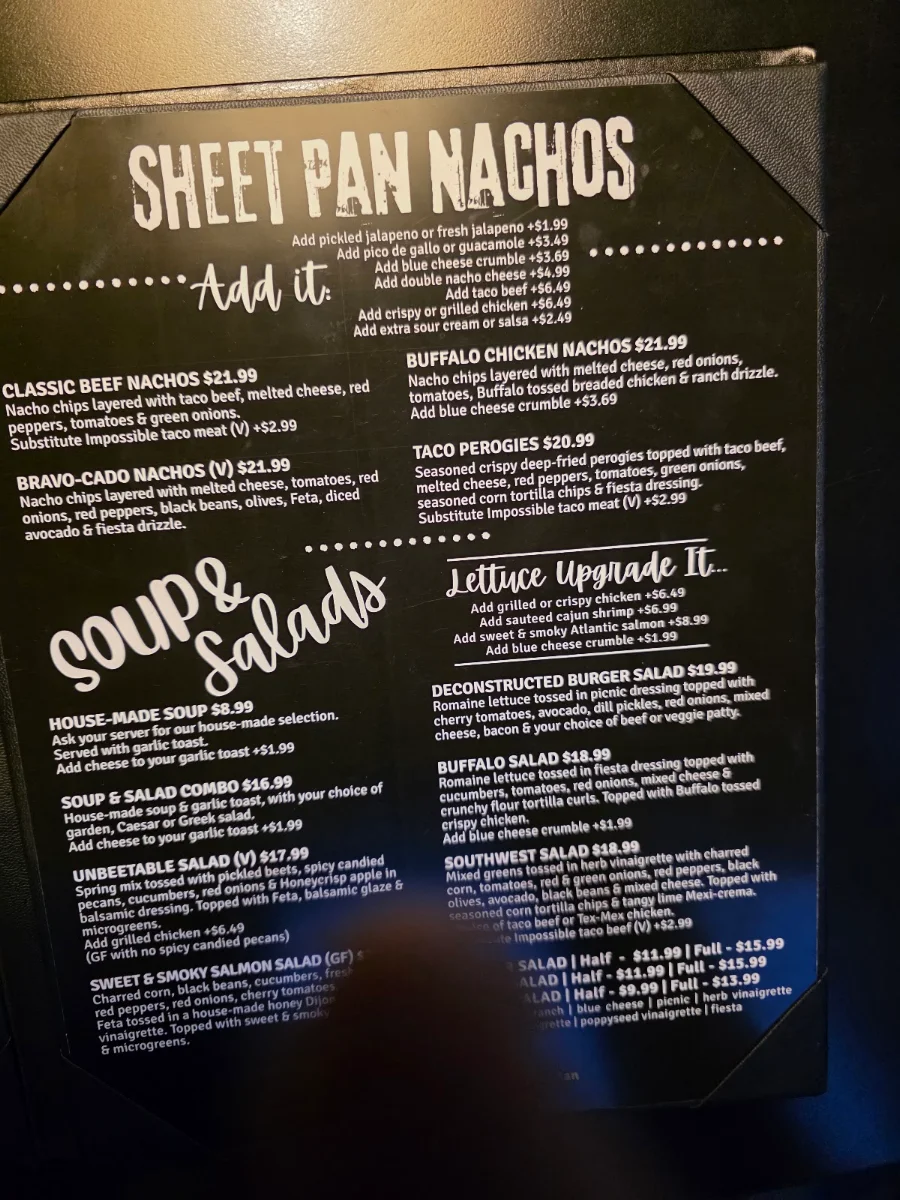 SHEET PAN NACHOS
Add it:
Add pickled jalapeno or fresh jalapeno +$1.99
Add pico de gallo or guacamole +$3.49
Add blue cheese crumble +$3.69
Add double nacho cheese +$4.99
Add taco beef +$6.49
Add crispy or grilled chicken +$6.49
Add extra sour cream or salsa +$2.49
CLASSIC BEEF NACHOS $21.99
Nacho chips layered with taco beef, melted cheese, red
peppers, tomatoes & green onions.
Substitute Impossible taco meat (V) +$2.99
BRAVO-CADO NACHOS (V) $21.99
Nacho chips layered with melted cheese, tomatoes, red
onions, red peppers, black beans, olives, Feta, diced
avocado & fiesta drizzle.
BUFFALO CHICKEN NACHOS $21.99
Nacho chips layered with melted cheese, red onions,
tomatoes, Buffalo tossed breaded chicken & ranch drizzle.
Add blue cheese crumble +$3.69
TACO PEROGIES $20.99
Seasoned crispy deep-fried perogies topped with taco beef,
melted cheese, red peppers, tomatoes, green onions,
seasoned corn tortilla chips & fiesta dressing.
Substitute Impossible taco meat (V) +$2.99
SOUP &
Salads
HOUSE-MADE SOUP $8.99
Ask your server for our house-made selection.
Served with garlic toast.
Add cheese to your garlic toast +$1.99
SOUP & SALAD COMBO $16.99
House-made soup & garlic toast, with your choice of
garden, Caesar or Greek salad.
Add cheese to your garlic toast +$1.99
UNBEETABLE SALAD (V) $17.99
Spring mix tossed with pickled beets, spicy candied
pecans, cucumbers, red onions & Honeycrisp apple in
balsamic dressing. Topped with Feta, balsamic glaze &
microgreens.
Add grilled chicken +$6.49
(GF with no spicy candied pecans)
SWEET & SMOKY SALMON SALAD (GF)
Charred corn, black beans, cucumbers,
red peppers, red onions, cherry tomatoes
Feta tossed in a house-made honey Dijon
vinaigrette. Topped with sweet & smoky
& microgreens.
Lettuce Upgrade It...
Add grilled or crispy chicken +$6.49
Add sauteed cajun shrimp +$6.99
Add sweet & smoky Atlantic salmon +$8.99
Add blue cheese crumble +$1.99
DECONSTRUCTED BURGER SALAD $19.99
Romaine lettuce tossed in picnic dressing topped with
cherry tomatoes, avocado, dill pickles, red onions, mixed
cheese, bacon & your choice of beef or veggie patty.
BUFFALO SALAD $18.99
Romaine lettuce tossed in fiesta dressing topped with
cucumbers, tomatoes, red onions, mixed cheese &
crunchy flour tortilla curls. Topped with Buffalo tossed
crispy chicken.
Add blue cheese crumble +$1.99
SOUTHWEST SALAD $18.99
Mixed greens tossed in herb vinaigrette with charred
corn, tomatoes, red & green onions, red peppers, black
olives, avocado, black beans & mixed cheese. Topped with
seasoned corn tortilla chips & tangy lime Mexi-crema.
of taco beef or Tex-Mex chicken.
Impossible taco beef (V) +$2.99
SALAD | Half - $11.99 | Full - $15.99
| Half - $11.99 | Full - $15.99
| Half - $9.99 | Full - $13.99
| blue cheese | picnic | herb vinaigrette
| poppyseed vinaigrette | fiesta